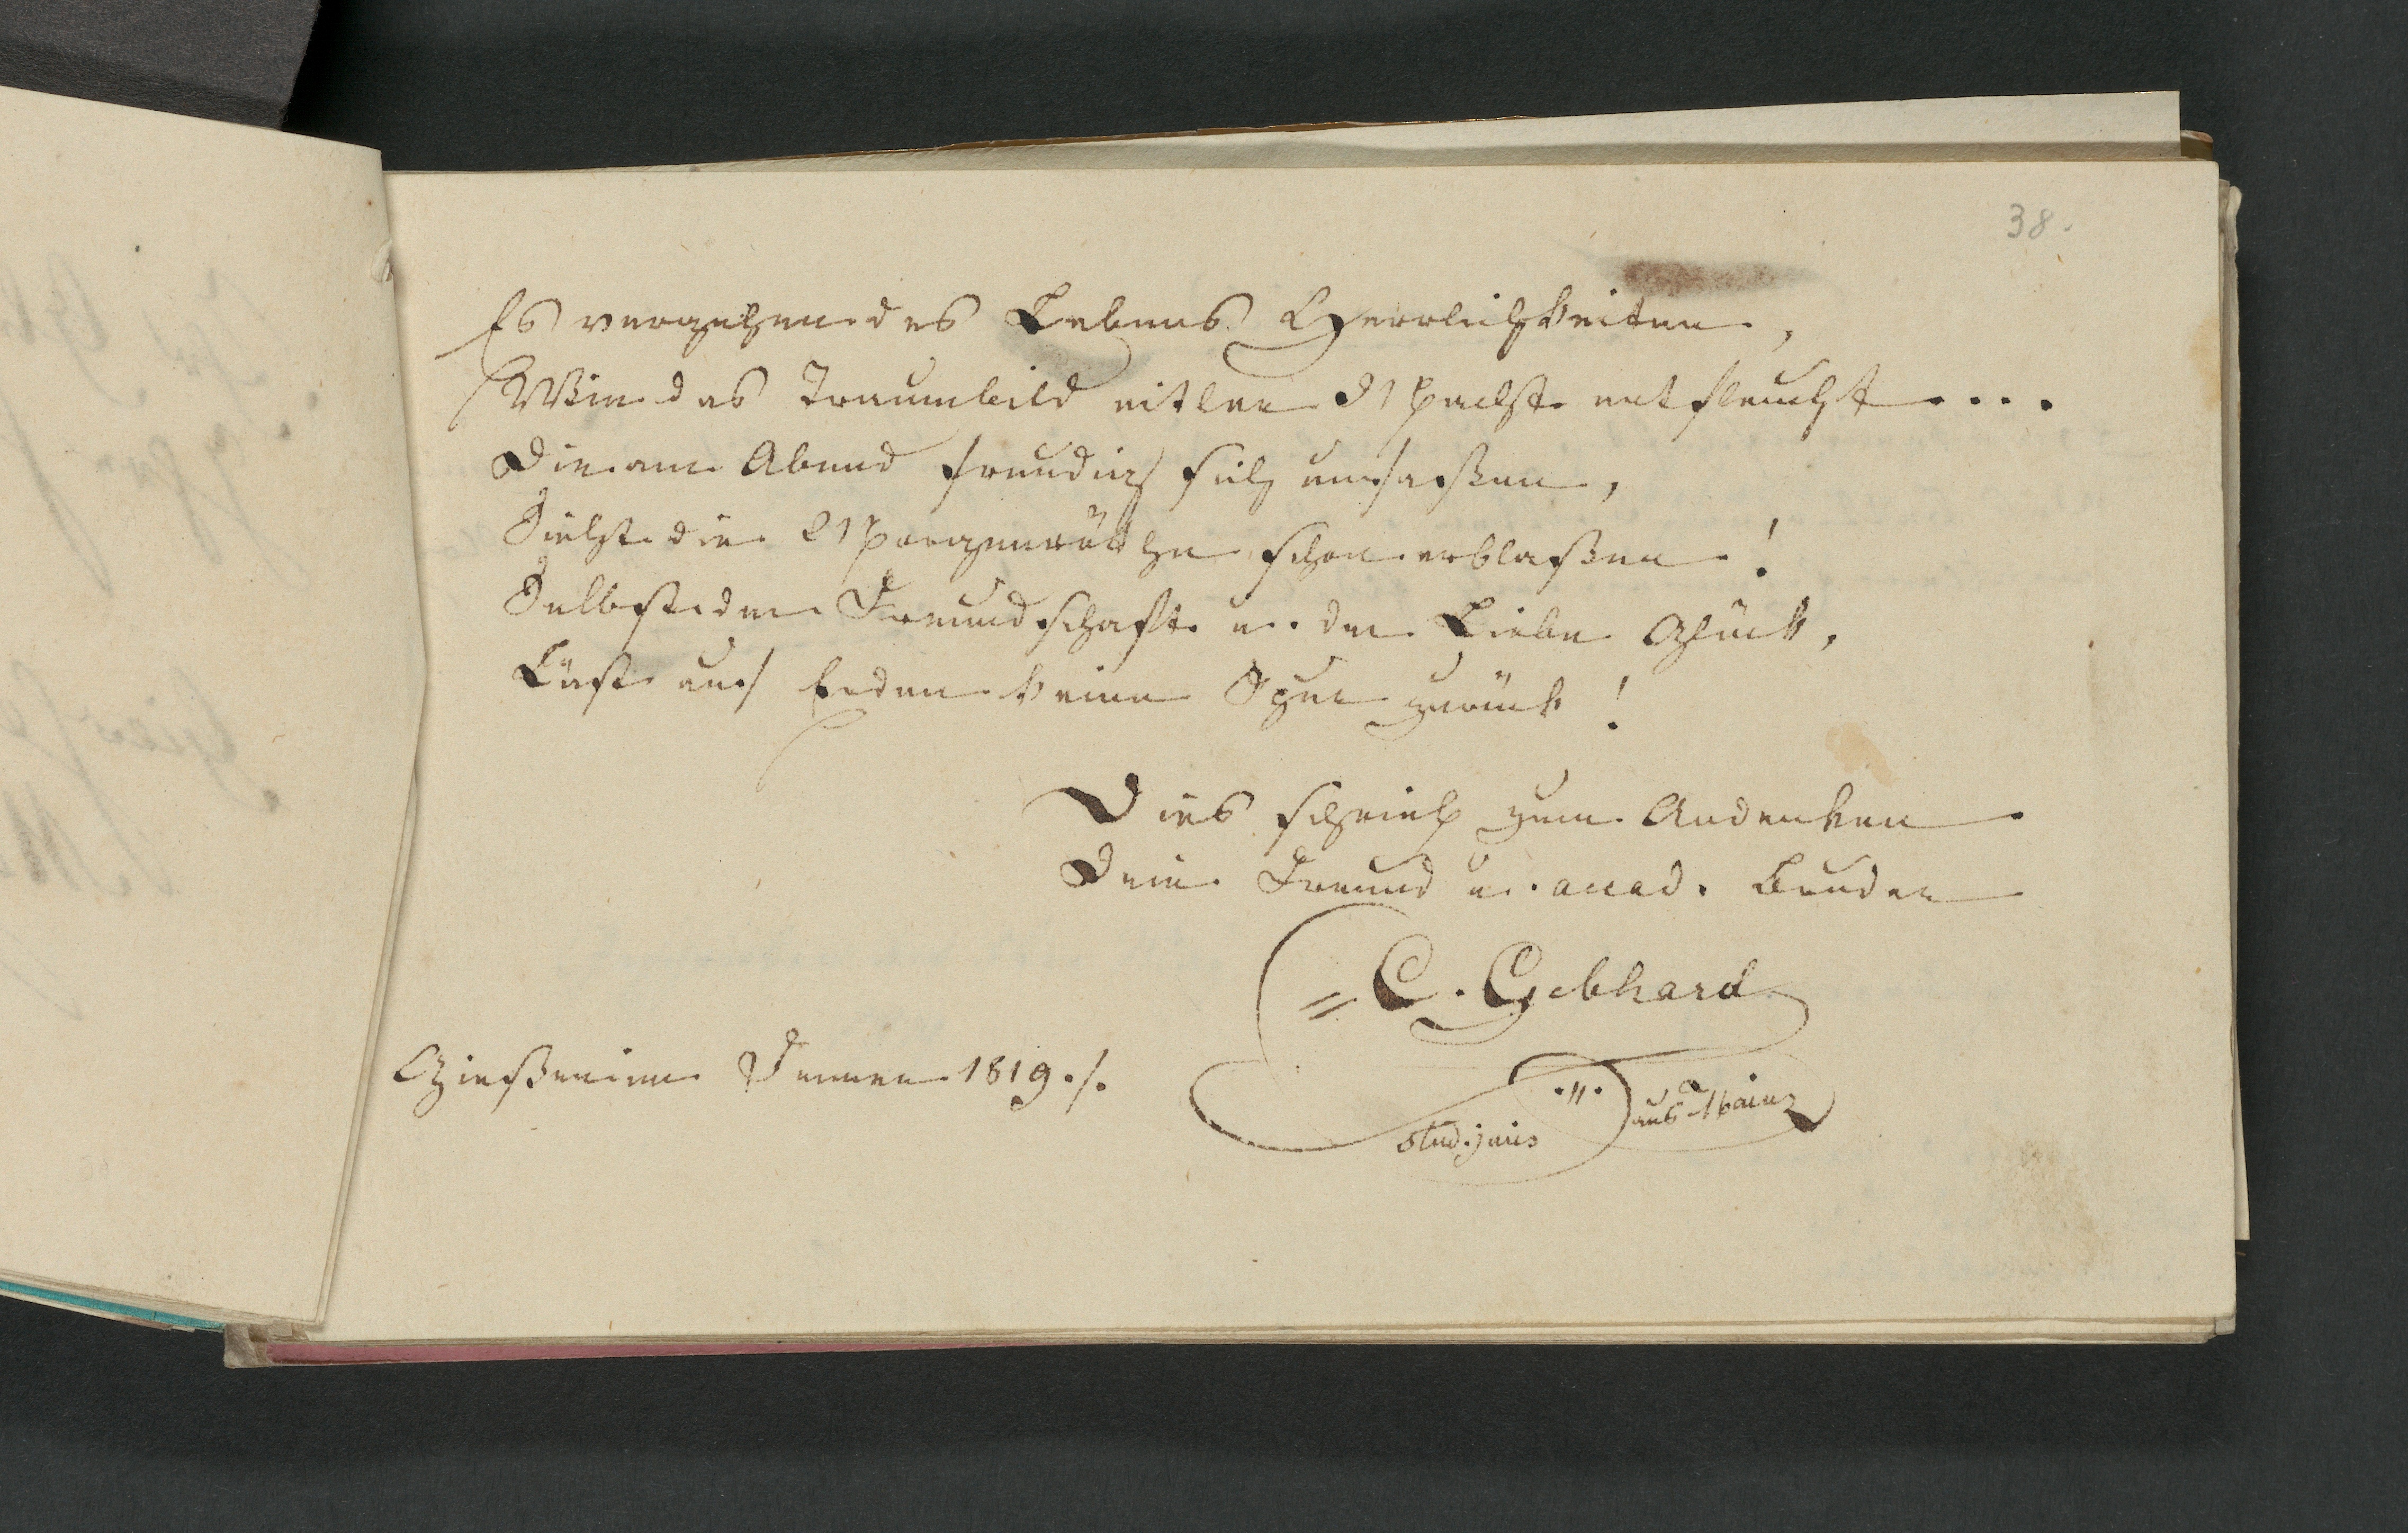 38.
Es vergehen des Lebens Herrlichkeiten,
Wie das Traumbild eitler Macht entfleucht....
Die am Abend freudig sich umfaßen,
Sieht die Morgenröthe schon erblaßen!
Selbst der Freundschaft u. der Liebe Glück,
Läßt auf Erden keine Spur zurück!
Dies schrieb zum Andenken
Dein Freund u. acad. Bruder
C. Gebhard
Gießen im Jenner 1819./.
stud. juris aus Mainz